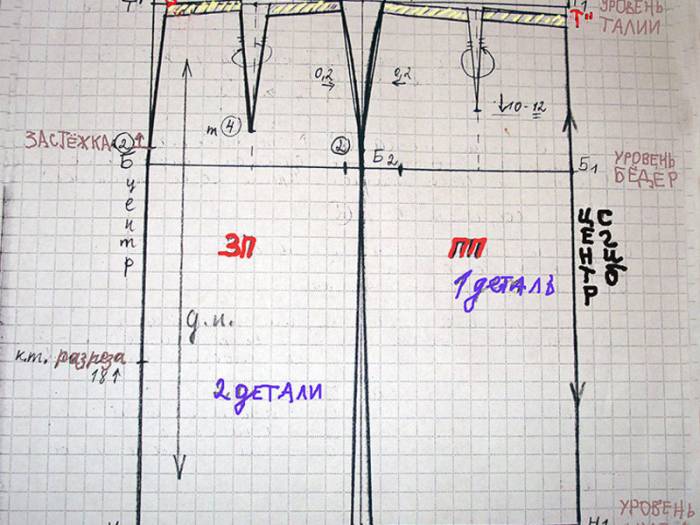 Т"
1
УРОВЕНЬ
Т"
ТАЛИИ
0,2
0,2
↓10-12
т 4
ЗАСТЁЖКА 2 ↑
2
Б
Б2
Б1
УРОВЕНЬ
БЁДЕР
центр
ЗП
ПП
ЦЕНТР
СГИБ
1 деталь
д.н.
к.т. разреза
18↑
2 детали
УРОВЕНЬ